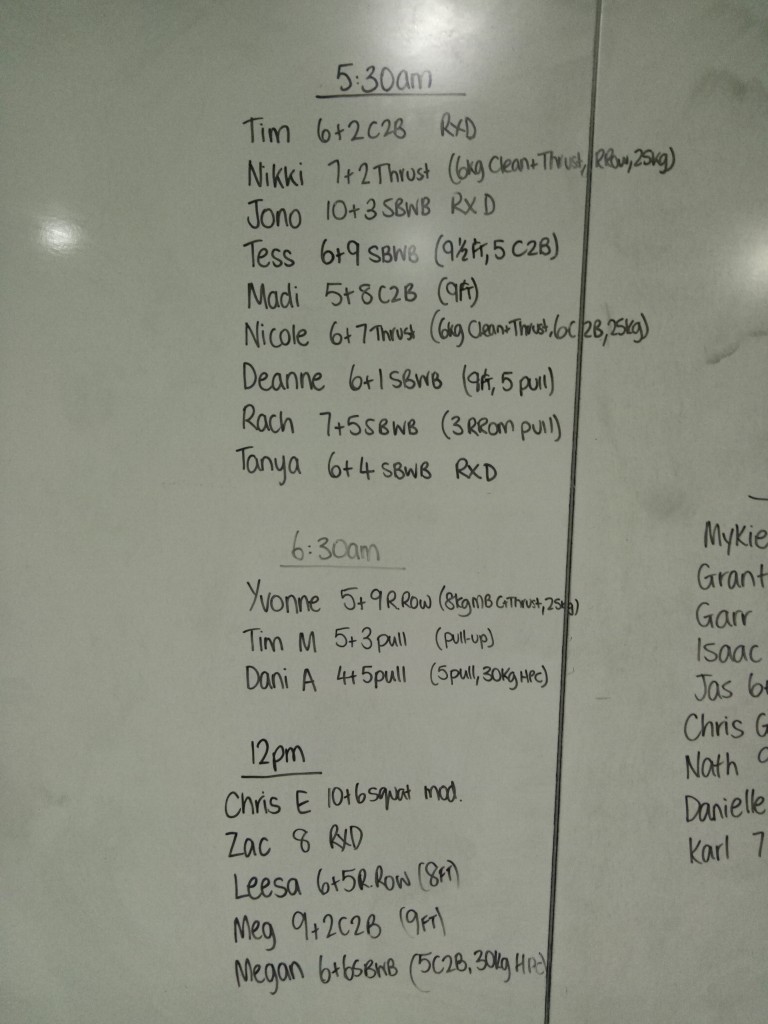 5:30am
Tim 6+2 C2B RXD
Nikki 7+2 Thrust (6kg Clean+Thrust, RRow, 25kg)
Jono 10+3 SBWB RXD
Tess 6+9 SBWB (9½ft, 5 C2B)
Madi 5+8 C2B (9ft)
Nicole 6+7 Thrust (6kg Clean+Thrust, 6C2B, 25kg)
Deanne 6+1 SBWB (9ft, 5 pull)
Rach 7+5 SBWB (3 RRom pull)
Tanya 6+4 SBWB RXD
6:30am
Yvonne 5+9 R.Row (8kg MB C+Thrust, 25kg)
Tim M 5+3 pull (pull-up)
Dani A 4+5 pull (5 pull, 30kg HPC)
12pm
Chris E 10+6 squat mod.
Zac 8 RXD
Leesa 6+5 R.Row (8FT)
Meg 9+2 C2B (9FT)
Megan 6+6 SBWB (5C2B, 30kg HPC)
Mykie
Grant
Garr
Isaac
Jas 6+
Chris G
Nath 9
Danielle
Karl 7